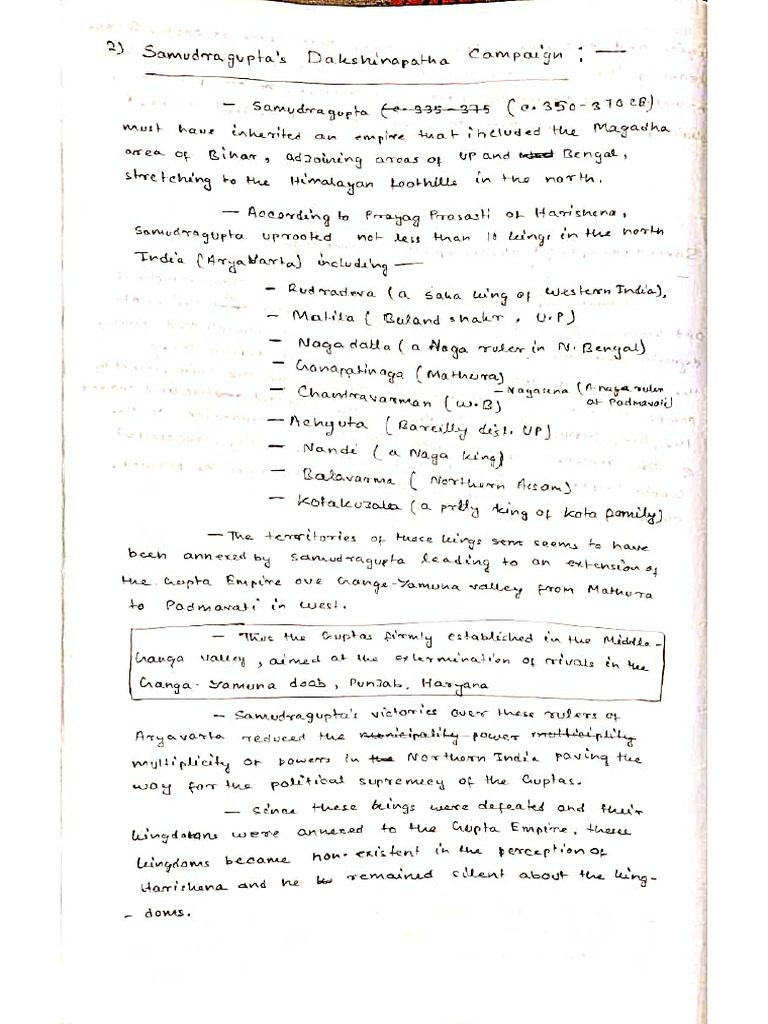 2) Samudragupta's Dakshinapatha Campaign : —
— Samudragupta (c. 335-375 (c. 350-370 CE)
must have inherited an empire that included the Magadha
area of Bihar, adjoining areas of UP and Bengal,
stretching to the Himalayan foothills in the north.
— According to Prayag Prasasti of Harishena,
Samudragupta uprooted not less than 10 kings in the north
India (Aryavarta) including —
— Rudradeva (a Saka king of Western India),
— Matila (Buland shahr, U.P)
— Nagadatta (a Naga ruler in N. Bengal)
— Ganapatinaga (Mathura)
— Chandravarman (W.B)
— Nagasena (A naga ruler
at Padmavati)
— Achyuta (Bareilly dist. UP)
— Nandi (a Naga king)
— Balavarma (Northern Assam)
— Kotakuzala (a prtty king of Kota family)
— The territories of these kings sem seems to have
been annexed by Samudragupta leading to an extension of
the Gupta Empire ove Ganga-Yamuna valley from Mathura
to Padmavati in west.
— Thus the Guptas firmly established in the Middle-
Ganga valley, aimed at the extermination of rivals in the
Ganga-Yamuna doab, Punjab, Haryana
— Samudragupta's victories over these rulers of
Aryavarta reduced the municipality power mutticiplity
multiplicity of powers in the Northern India paving the
way for the political supremecy of the Guptas.
— Since these kings were defeated and their
kingdoms were annexed to the Gupta Empire, these
kingdoms became non-existent in the perception of
Harishena and he remained silent about the king-
- doms.